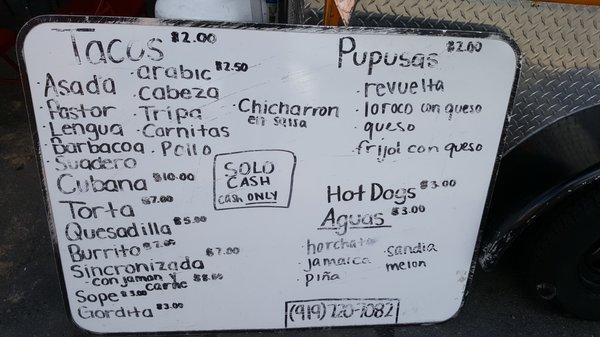 Tacos $2.00
· Asada
· Pastor
· Lengua
· Barbacoa
· Suadero
· arabic $2.50
· Cabeza
· Tripa
· Carnitas
· Pollo
· Chicharron
en salsa
Cubana $10.00
Torta $7.00
Quesadilla $5.00
Burrito $7.00
Sincronizada $7.00
- con jamon y carne $8.00
Sope $3.00
Gordita $3.00
SOLO
CASH
cash ONLY
Pupusas $2.00
· revuelta
· loroco con queso
· queso
· frijol con queso
Hot Dogs $3.00
Aguas $3.00
· horchata
· jamaica
· piña
· sandia
· melon
(919) 720-7082